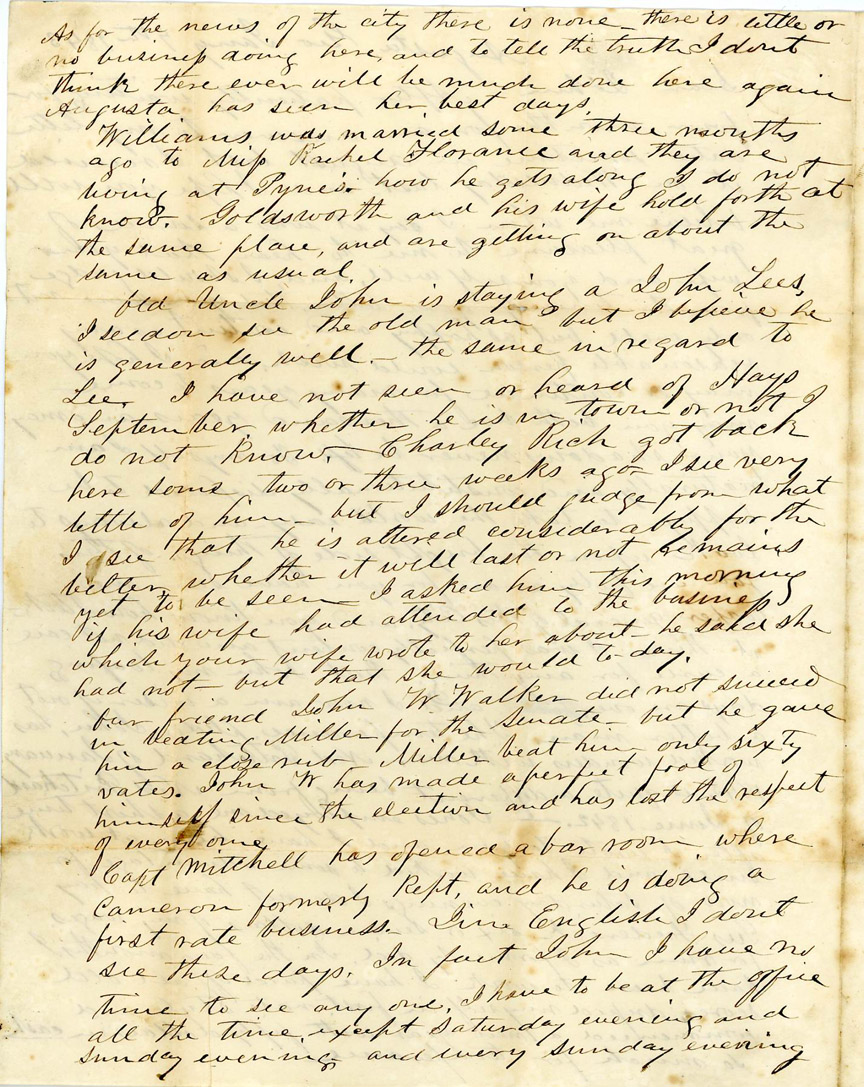 As for the news of the city there is none - there is little or
no business doing here, and to tell the truth I dont
think there ever will be much done here again
Augusta has seen her best days.
Williams was married some three months
ago to Miss Rachel Florance and they are
living at Pyne's. how he gets along I do not
know. Goldsworth and his wife hold forth at
the same place, and are getting on about the
same as usual.
Old Uncle John is staying a John Lees,
I seldom see the old man but I believe he
is generally well - the same in regard to
Lee. I have not seen or heard of Hays
September whether he is in town or not I
do not know. Charley Rich got back
here some two or three weeks ago - I see very
little of him - but I should judge from what
I see that he is altered considerably for the
better, whether it will last or not remains
yet to be seen - I asked him this morning
if his wife had attended to the business
which your wife wrote to her about - he said she
had not - but that she would to-day.
Our friend John W Walker did not succeed
in beating Miller for the Senate - but he gave
him a close rub - Miller beat him only sixty
votes. John W has made a perfect fool of
himself since the election and has lost the respect
of every one,
Capt Mitchell has opened a bar room where
Cameron formerly Kept, and he is doing a
first rate business - English I dont
see these days. In fact John I have no
time to see any one, I have to be at the office
all the time, except Saturday evening and
Sunday evening, and every Sunday evening